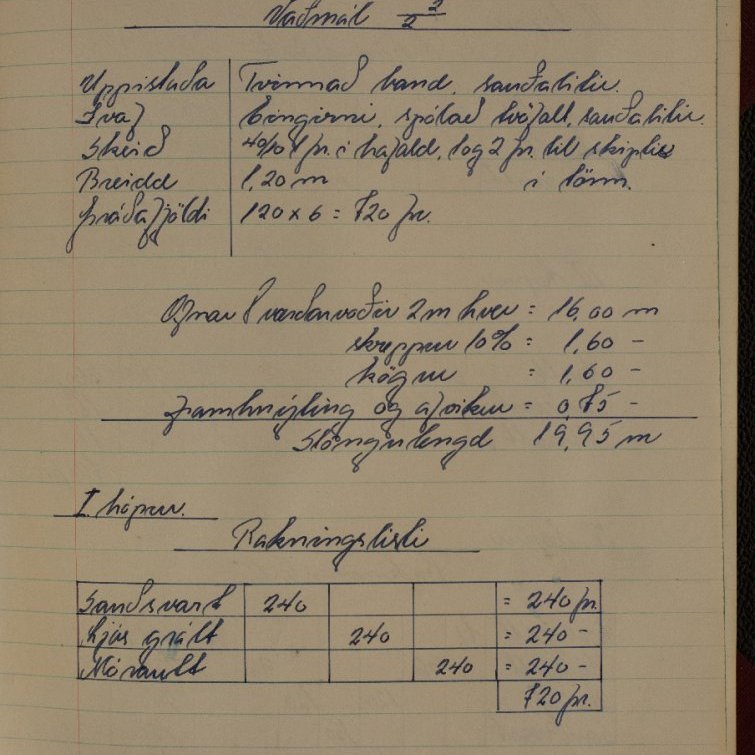 Vaðmál 2/2
Uppistaða Tvinnað band, sauðalitir.
Ívaf Eingirni, spólað tvöfalt, sauðalitir.
Skeið 40/10 1 þr. í hafald, og 2 þr. til skiptis
Breidd 1,20 m í tönn.
Þráðafjöldi 120 x 6 = 720 þr.
Ofnar 8 værðarvoðir 2 m hver = 16,00 m
skreppur 10% = 1,60 -
kögur = 1,60 -
framhnýting og afvikur = 0,75 -
Slöngulengd 19,95 m
I. hópur.
Rakningslisti
Sauðsvart 240 = 240 þr.
Ljós grátt 240 = 240 -
Mórautt 240 = 240 -
720 þr.